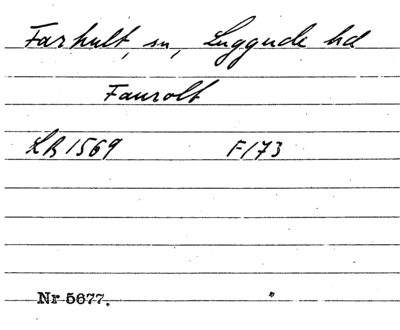 Farhult, sn, Luggude hd
Faurolt
LR 1569 F173
Nr 5677.